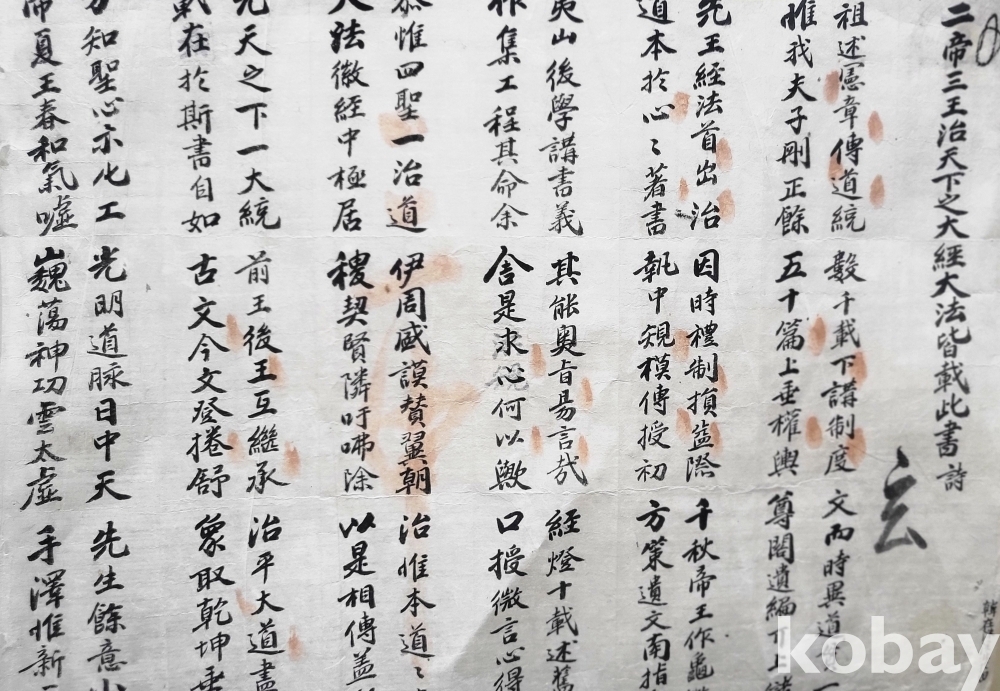 二帝三王治天下之大經大法皆載此書 詩
玄
祖述憲章傳道統 數千載下講制度 文而時異道 一
惟我夫子刪正餘 五十篇上垂權輿 尊閣遺編
先王經法首出治 因時禮制損益際 千秋帝王作龜
道本於心〻著書 執中規模傳授初 方策遺文南指
夷山後學講書義 其能奧旨易言哉 經燈十載述舊
作集工程其命余 舍是求心何以歟 口授微言心得
恭惟四聖一治道 伊周盛謨贊翼朝 治惟本道〻
大法徽經中極居 稷契賢隣吁咈除 以是相傳蓋
光天之下一大統 前王後王互繼承 治平大道盡
載在於斯書自如 古文今文登捲舒 象取乾坤垂
方知聖心亦化工 光明道脈日中天 先生餘意
帝夏王春和氣噓 巍蕩神功雲太虛 手澤惟新
kobay